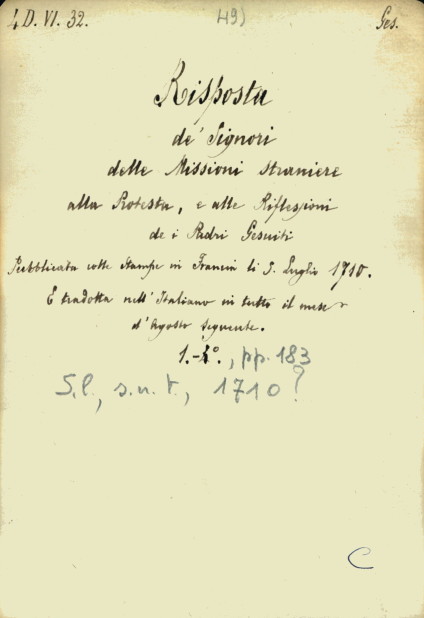 4 D. VI. 32. 49) Ges.
Risposta
de' Signori
delle Missioni straniere
alla Protesta, e alle Riflessioni
de i Padri Gesuiti
Pubblicata colle Stampe in Francia li 5. Luglio 1710.
E tradotta nell' Italiano in tutto il mese
d'Agosto seguente.
1.-4°., pp. 183
S.l., s.n.t., 1710?
C